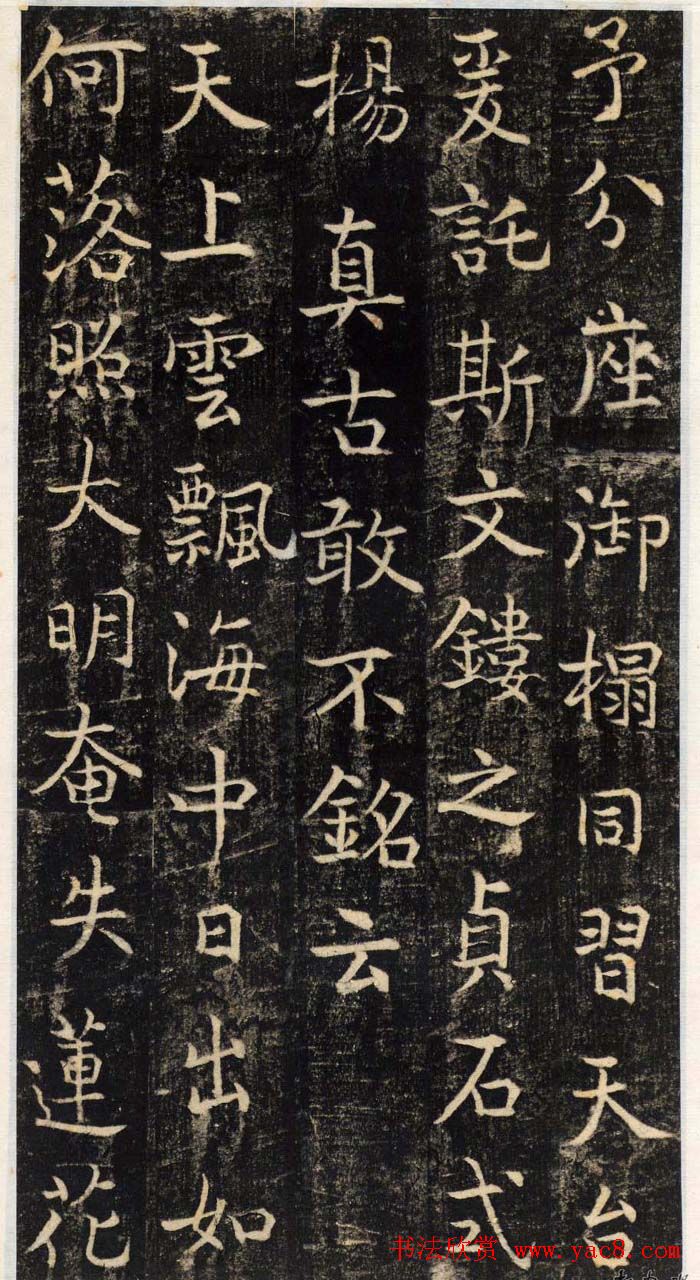 予分座御榻同習天台
爰託斯文鏤之貞石式
揚真古敢不銘云
天上雲飄海中日出如
何落照大明奄失蓮花
书法欣赏 www.yac8.com